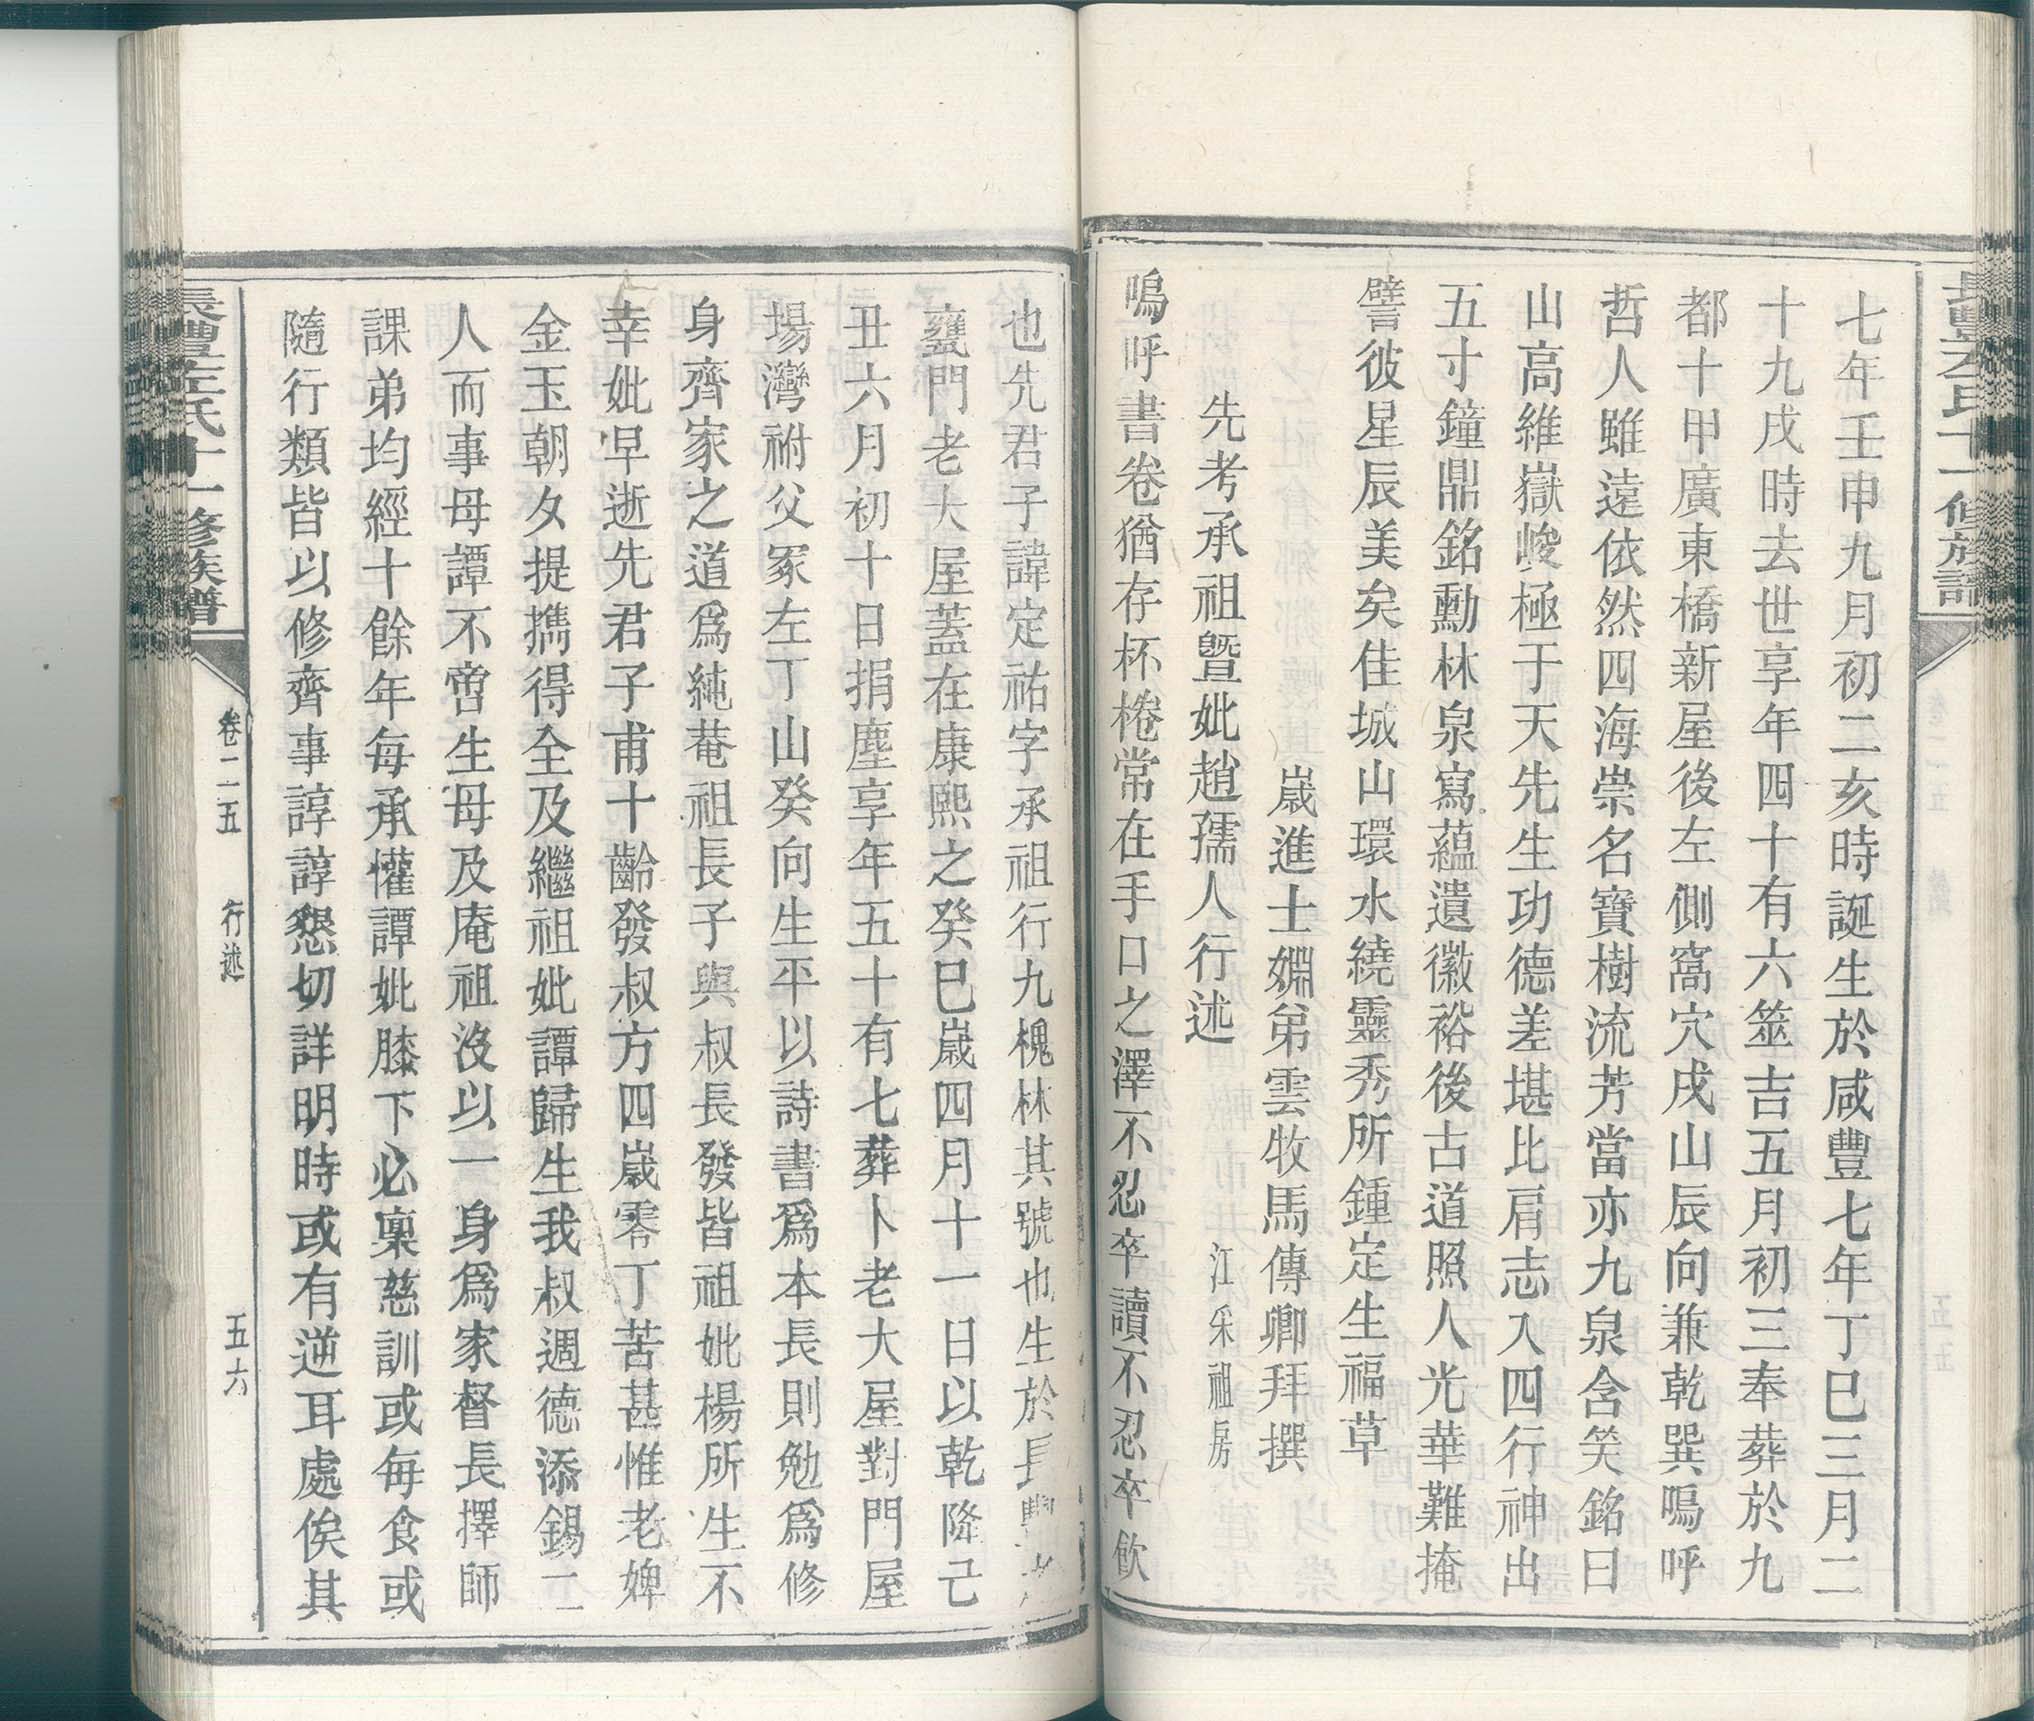 七年壬申九月初二亥時誕生於咸豐七年丁巳三月二
十九戌時去世享年四十有六筮吉五月初三奉葬於九
都十甲廣東橋新屋後左側窩穴戌山辰向兼乾巽嗚呼
哲人雖遠依然四海崇名寶樹流芳當亦九泉含笑銘曰
山高維嶽峻極于天先生功德差堪比肩志入四行神出
五寸鐘鼎銘勳林泉寫蘊遺徽裕後古道照人光華難掩
譬彼星辰美矣佳城山環水繞靈秀所鍾定生福草
歲進士姻弟雲牧馬傳卿拜撰
先考承祖暨妣趙孺人行述 江采祖房
嗚呼書卷猶存杯棬常在手口之澤不忍卒讀不忍卒飲
也先君子諱定祐字承祖行九槐林其號也生於長豐
甕門老大屋蓋在康熙之癸巳歲四月十一日以乾隆己
丑六月初十日捐塵享年五十有七葬卜老大屋對門屋
場灣祔父冢左丁山癸向生平以詩書爲本長則勉爲修
身齊家之道爲純菴祖長子與叔長發皆祖妣楊所生不
幸妣早逝先君子甫十齡發叔方四歲零丁苦甚惟老婢
金玉朝夕提攜得全及繼祖妣譚歸生我叔週德添錫二
人而事母譚不啻生母及庵祖沒以一身爲家督長擇師
課弟均經十餘年每承懽譚妣膝下必稟慈訓或每食或
隨行類皆以修齊事諄諄懇切詳明時或有逆耳處俟其
長豐左氏十一修族譜
卷二五 行述 五六